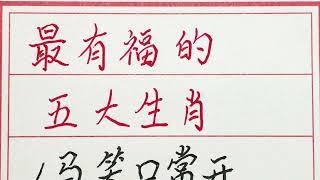 最有福的
五大生肖
马笑口常开